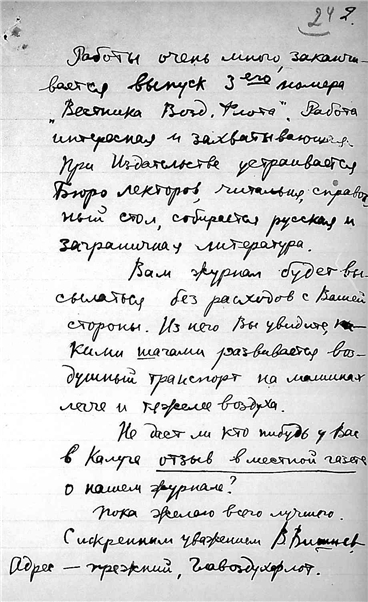 24 2.
Работы очень много, заканчи-
вается выпуск 3его номера
"Вестника Возд. Флота". Работа
интересная и захватывающая.
При Издательстве устраивается
Бюро лекторов, читальня, справоч-
ный стол, собирается русская и
заграничная литература.
Вам журнал будет вы-
сылаться без расходов с Вашей
стороны. Из него Вы увидите, ка-
кими шагами развивается воз-
душный транспорт на машинах
легче и тяжелее воздуха.
Не даст ли кто нибудь у Вас
в Калуге отзыв в местной газете
о нашем журнале?
Пока желаю всего лучшего.
С искренним уважением В.
Адрес — прежний, Главвоздухофлот.